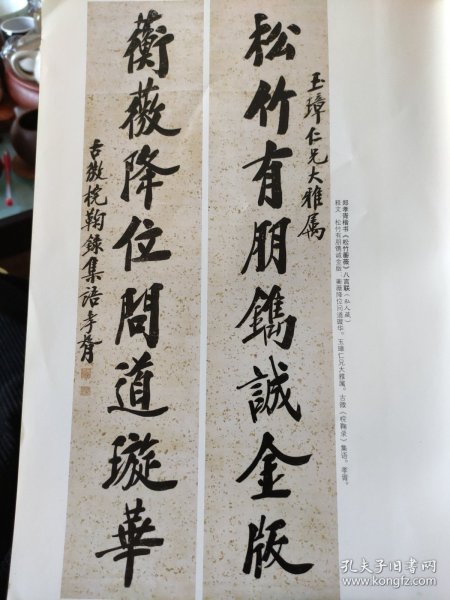 松竹有朋鐫誠金版
玉璋仁兄大雅属
蘅薇降位問道璇華
古微挽鞠錄集語孝胥
郑孝胥楷书《松竹蘅薇》八言联（私人藏）
释文：松竹有朋镌诚金版，蘅薇降位问道璇华。玉璋仁兄大雅属。古微《校鞠录》集语。孝胥。
孔夫子旧书网
www.kongfz.com